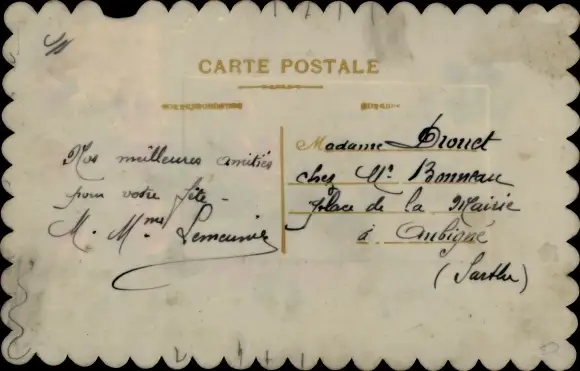 CARTE POSTALE
CORRESPONDANCE
ADRESSE
Nos meilleures amitiés
pour votre fête -
M. Mme Lemeunier
Madame Drouet
chez Mr Bonneau
place de la Mairie
à Aubigné
(Sarthe)